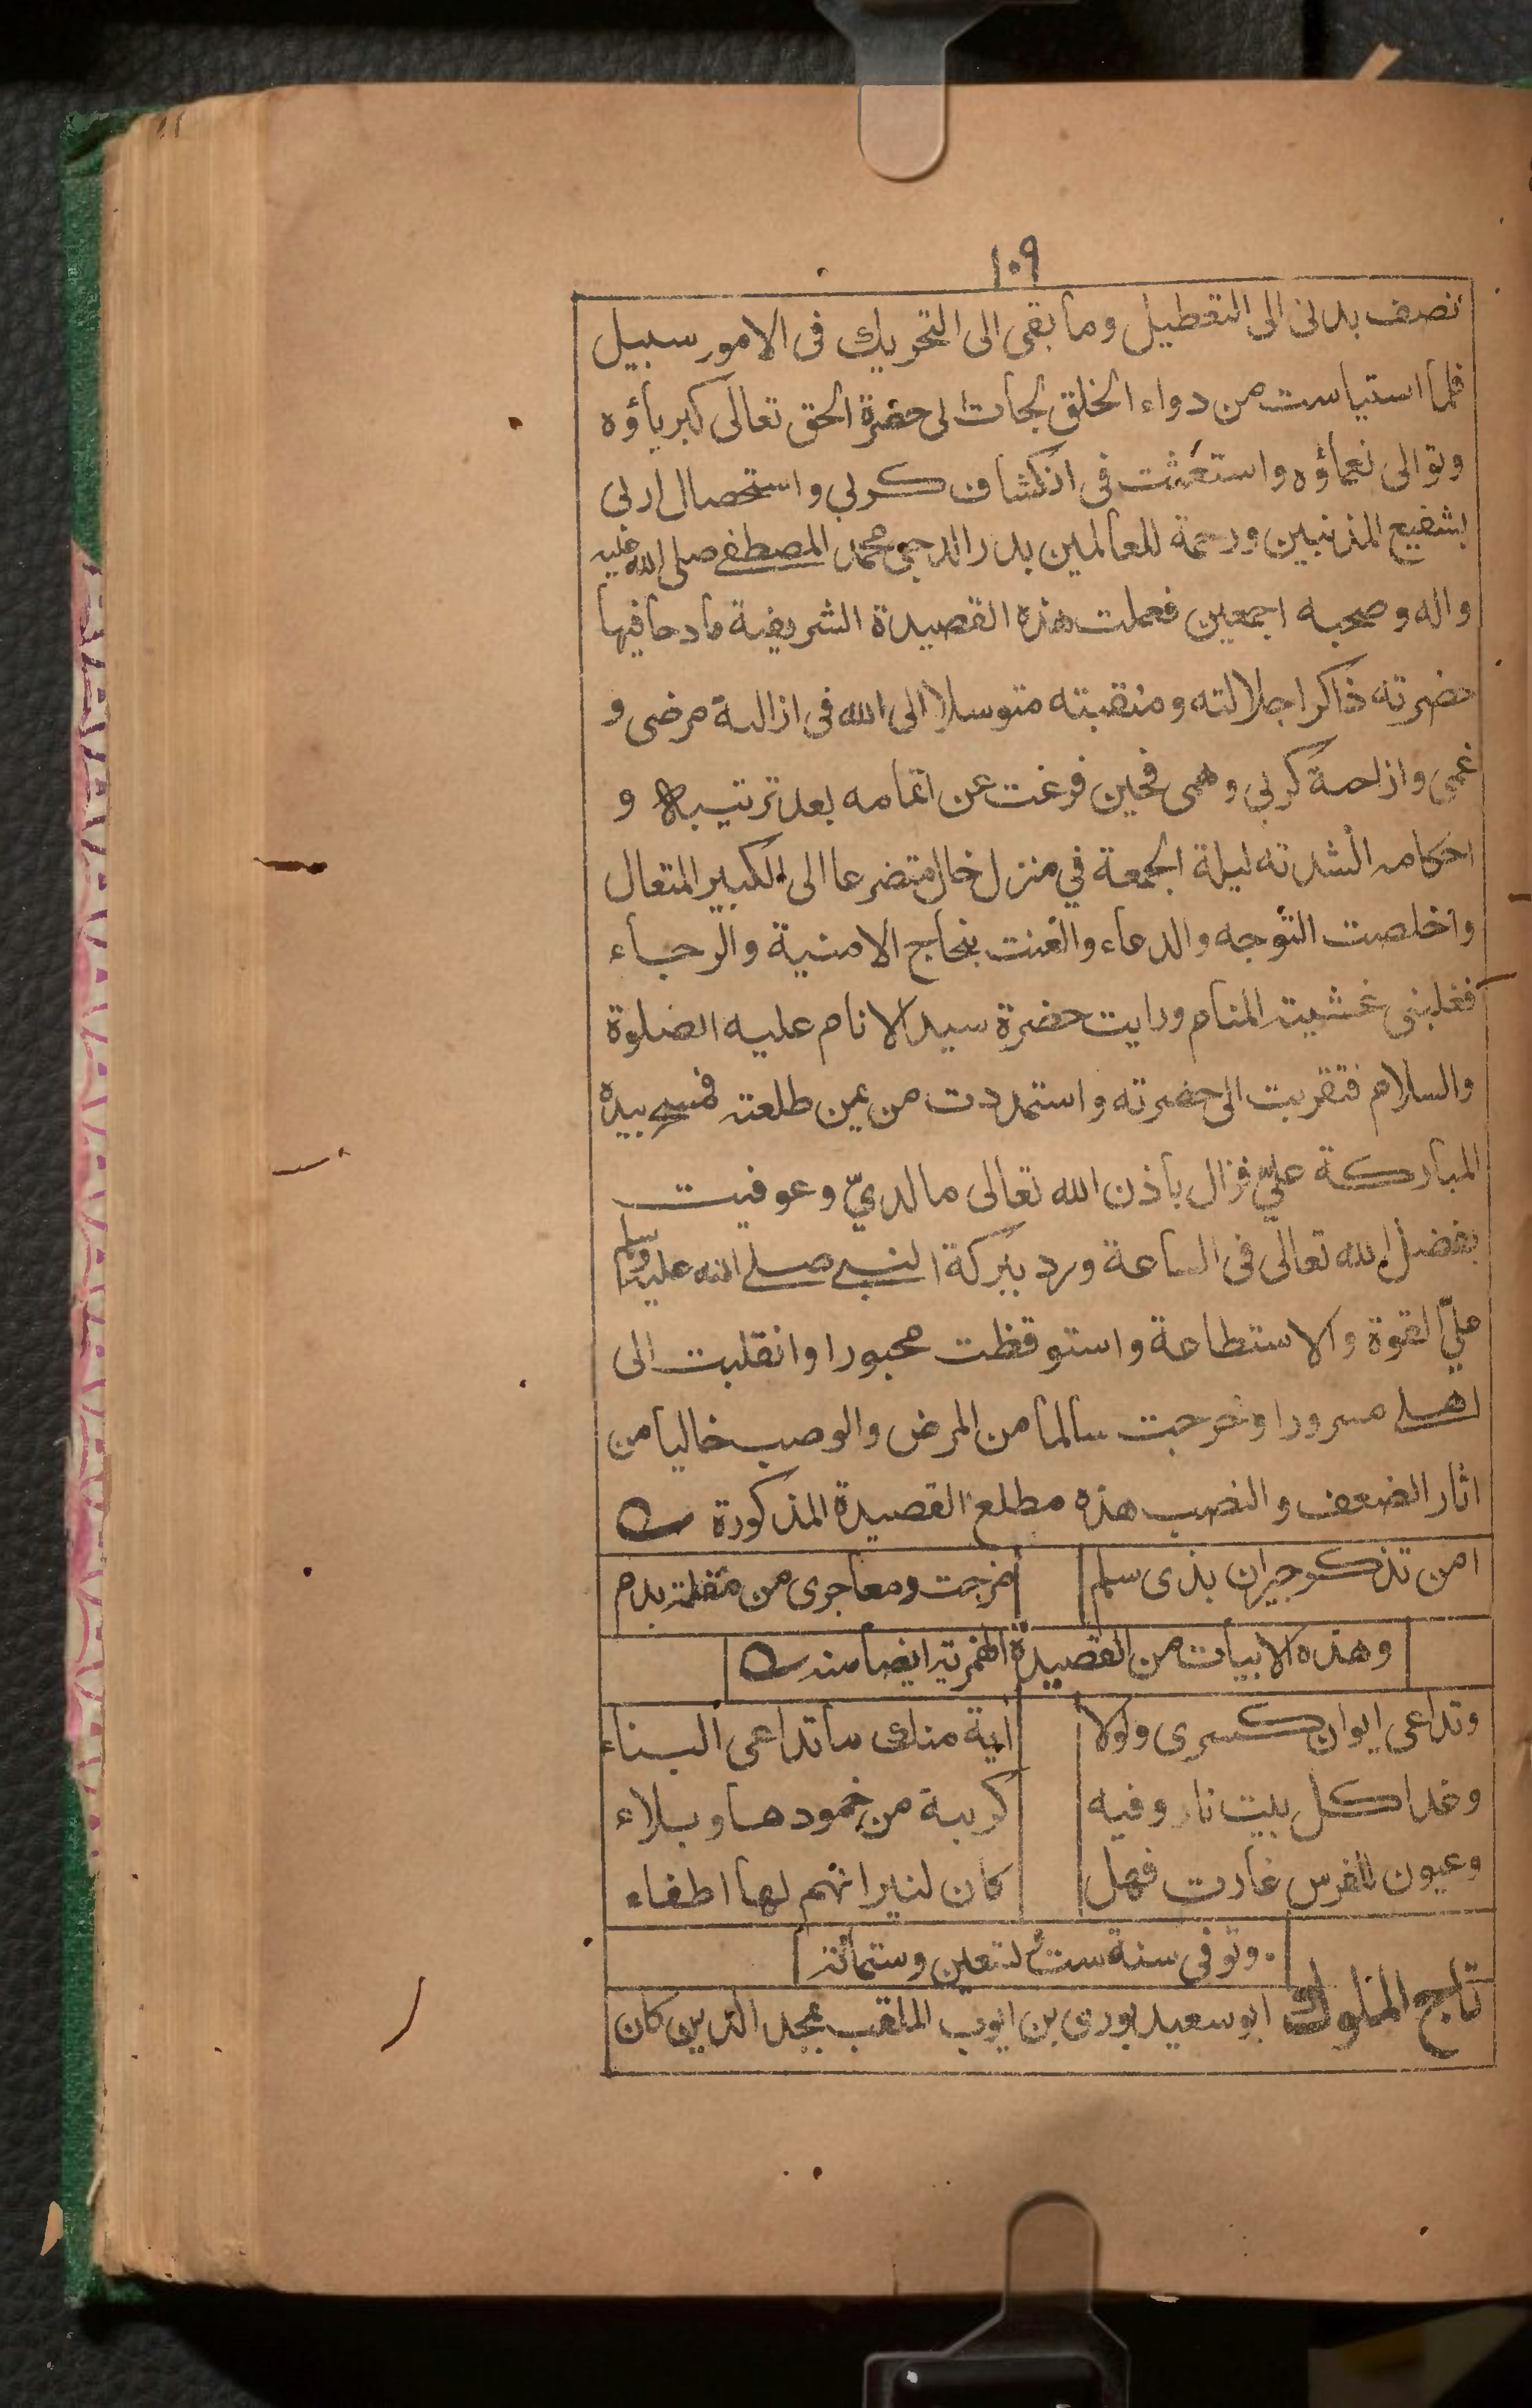 ١٠٩
نصف بدنى الى التعطيل وما بقى الى التحريك فى الامور سبيل
فلما استياست من دواء الخلق لجات الى حضرة الحق تعالى كبرياؤه
وتوالى نعماؤه واستغثت فى انكشاف كربى واستحصال اربى
بشفيع المذنبين ورحمة للعالمين بدر الدجى محمد المصطفے صلى الله عليه
واله وصحبه اجمعين فعملت هذه القصيدة الشريفة مادحا فيها
حضرته ذاكرا جلالته ومنقبته متوسلا الى الله فى ازالة مرضى و
غمى وازاحة كربى وهمى فحين فرغت عن اتمامه بعد ترتيبه و
احكامه انشدته ليلة الجمعة في منزل خال متضرعا الى الكبير المتعال
واخلصت التوجه والدعاء والغنت بنجاح الامنية والرجاء
فغلبنى غشية المنام ورايت حضرة سيد الانام عليه الصلوة
والسلام فتقربت الى حضرته واستمددت من يمن طلعته فمسح بيده
المباركة عليّ فزال باذن الله تعالى ما لديّ وعوفيت
بفضل الله تعالى فى الساعة ورد ببركة النبے صلے الله عليه وسلم
عليّ القوة والاستطاعة واستوقظت محبورا وانقلبت الى
اهلے مسرورا وخرجت سالما من المرض والوصب خاليا من
اثار الضعف والنصب هذه مطلع القصيدة المذكورة
امن تذكر جيران بذى سلم مزجت دمعا جرى من مقلة بدم
وهذه الابيات من القصيدة الهمزية ايضا منه
وتداعى ايوان كسرى ولولا اية منك ما تداعى البناء
وغدا كل بيت نار وفيه كربة من خمودها وبلاء
وعيون للفرس غارت فهل كان لنيرانهم لها اطفاء
وتوفى سنة ست تسعين وستمائة
تاج الملوك ابو سعيد بورى بن ايوب الملقب بمجد الدين كان